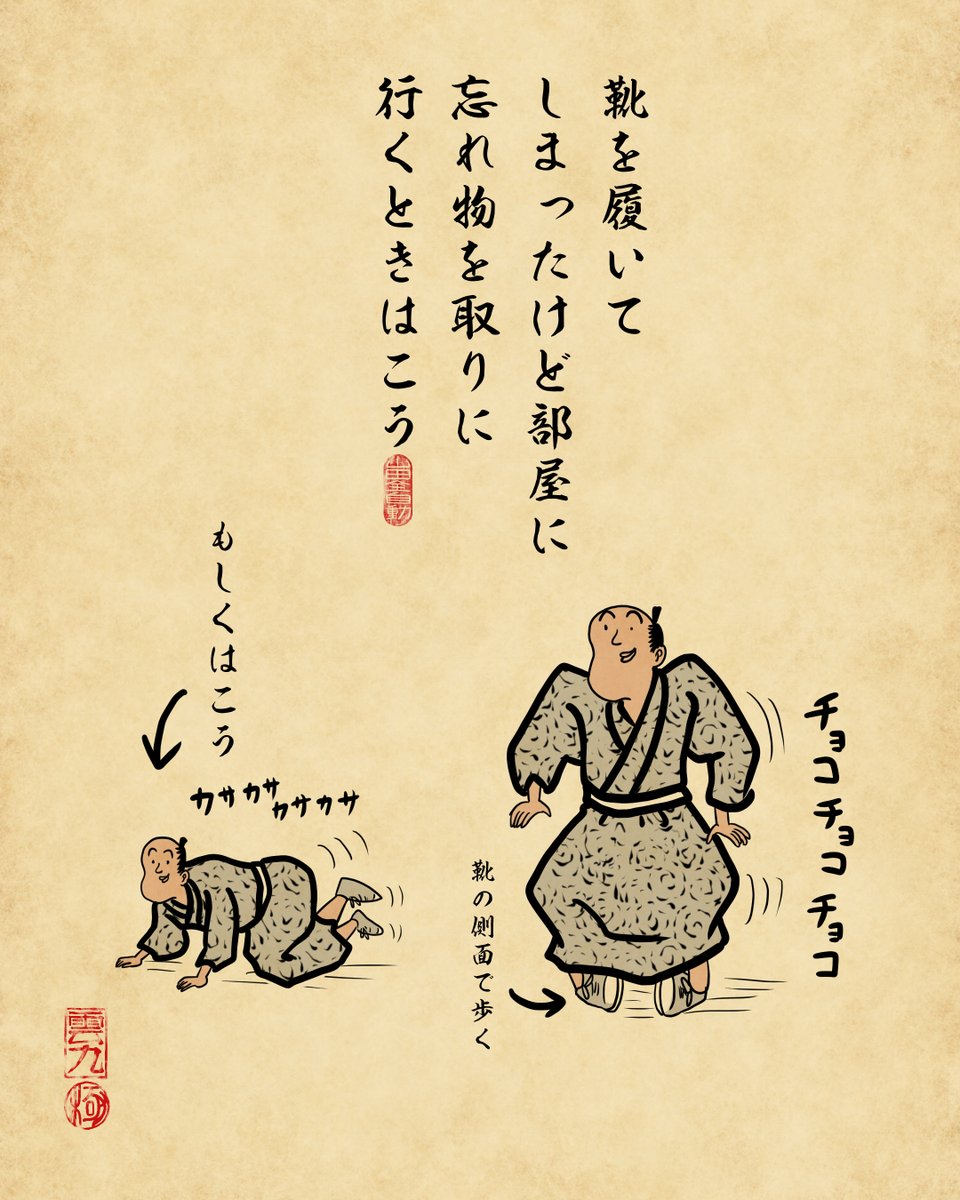 靴を履いて
しまったけど部屋に
忘れ物を取りに
行くときはこう
チョコチョコチョコ
靴の側面で歩く
もしくはこう
カサカサカサカサ
雲九
極